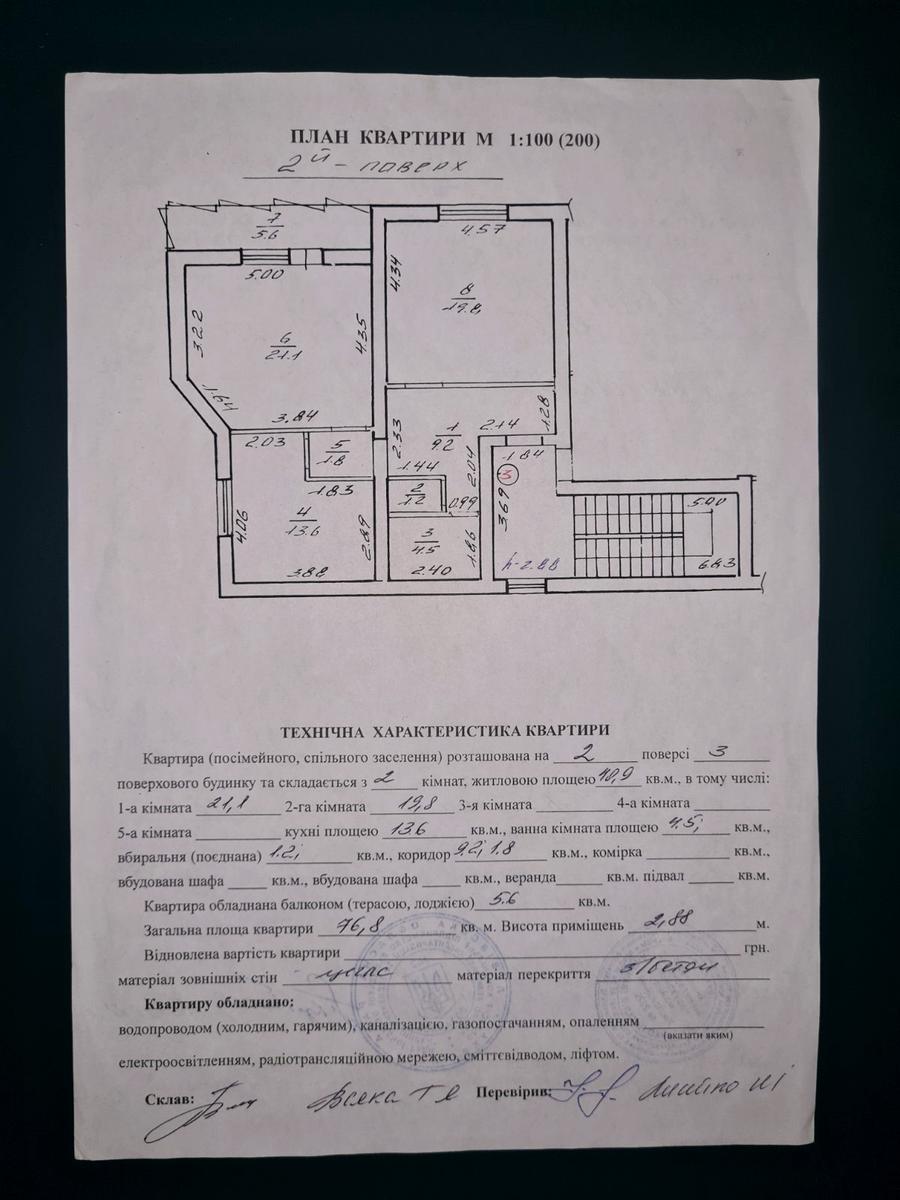 ПЛАН КВАРТИРИ М 1:100 (200)
2й - поверх
7
5.6
5.00
4.57
4.34
8
19.8
3.22
6
21.1
4.35
1.91
3.84
2.03
5
1.8
1.83
2.33
1
9.2
2.14
1.28
1.44
2.04
1.84
3
2
1.2
0.99
3.69
4.06
4
13.6
2.89
3
4.5
1.86
5.00
3.88
2.40
h-2.88
6.83
ТЕХНІЧНА ХАРАКТЕРИСТИКА КВАРТИРИ
Квартира (посімейного, спільного заселення) розташована на 2 поверсі 3
поверхового будинку та складається з 2 кімнат, житловою площею 40,9 кв.м., в тому числі:
1-а кімната 21,1 2-га кімната 19,8 3-я кімната 4-а кімната
5-а кімната кухні площею 13.6 кв.м., ванна кімната площею 4.5; кв.м.,
вбиральня (поєднана) 1.2; кв.м., коридор 9.2; 1.8 кв.м., комірка кв.м.,
вбудована шафа кв.м., вбудована шафа кв.м., веранда кв.м. підвал кв.м.
Квартира обладнана балконом (терасою, лоджією) 5.6 кв.м.
Загальна площа квартири 76,8 кв. м. Висота приміщень 2,88 м.
Відновлена вартість квартири грн.
матеріал зовнішніх стін цегла матеріал перекриття з/бетон
Квартиру обладнано:
водопроводом (холодним, гарячим), каналізацією, газопостачанням, опаленням
(вказати яким)
електроосвітленням, радіотрансляційною мережею, сміттєвідводом, ліфтом.
Склав: Перевірив: